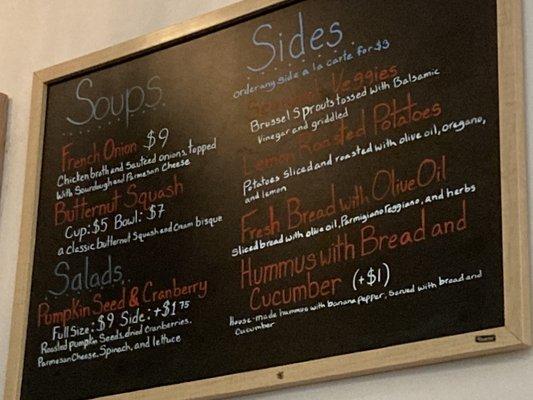 Soups
French Onion $9
Chicken broth and Sauteed onions, topped
with Sourdough and Parmesan Cheese
Butternut Squash
Cup: $5 Bowl: $7
a classic butternut Squash and Cream bisque
Salads
Pumpkin Seed & Cranberry
Full Size: $9 Side: +$1.75
Roasted pumpkin Seeds, dried Cranberries,
Parmesan Cheese, Spinach, and lettuce
Sides
order any side a la carte for $3
Veggies
Brussel Sprouts tossed with Balsamic
Vinegar and griddled
Lemon Roasted Potatoes
Potatoes sliced and roasted with olive oil, oregano,
and lemon
Fresh Bread with Olive Oil
Sliced bread with olive oil, Parmigiano reggiano, and herbs
Hummus with Bread and
Cucumber (+$1)
House-made hummus with banana pepper, Served with bread and
Cucumber